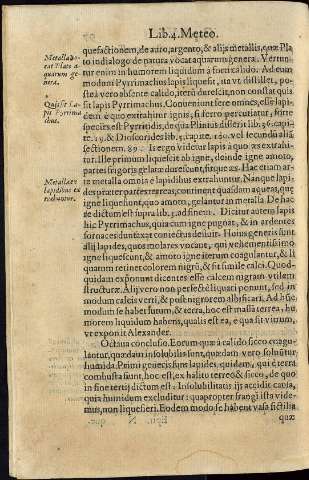 Lib.4. Meteo.
quefactionem, de auro, argento, & alijs metallis, quæ Pla
Metalla vo-
cat Plato a-
quarum ge-
nera.
to in dialogo de natura vocat aquarum genera. Vertun-
tur enim in humorem liquidum à forti calido. Ad eum
modum Pyrrimachus lapis liquefit, ita vt distillet, po-
stea vero absente calido, iterũ durescit, non constat quis
Quis sit La-
pis Pyrrima
chus.
sit lapis Pyrrimachus. Conueniunt fere omnes, esse lapi-
dem è quo extrahitur ignis, si ferro percutiatur, forte
species est Pyritidis, de qua Plinius disserit lib. 36. capi-
te. 19. & Dioscorides lib. 5. capite. 180. vel secundũ aliã
sectionem. 89. Isergo videtur lapis à quo æs extrahi-
tur. Ille primum liquescit ab igne, deinde igne amoto,
partes frigoris gelatæ durescunt, fitque æs. Hac etiam ar-
Metalla ex
lapidibus ex
trahuntur.
te metalla omnia è lapidibus extrahuntur. Nanque lapi-
des præter partes terreas, continent quasdam aqueas, quę
igne liquescunt, quo amoto, gelantur in metalla. De hac
re dictum est supra lib. 3. ad finem. Dicitur autem lapis
hic Pyrrimachus, quia cum igne pugnat, & in ardentes
fornaces
alij lapides, quos molares vocant, qui vehementissimo
igne liquescunt, & amoto igne iterum coagulantur, & li
quarum retinet colorem nigrũ, & fit simile calci. Quod-
quidam exponunt dicentes esse calcem nigram vtilem
structuræ. Alij vero non perfectè liquari ponunt, sed in
modum calcis verti, & post nigrorem albificari. Ad hũc
modum se habet futum, & terra, hoc est massa terrea, hu
morem liquidum habens, qualis est ea, è qua fit vitrum,
vt exponit Alexander.
Octaua conclusio. Eorum quæ à calido sicco coagu-
lantur, quædam insolubilia sunt, quædam vero soluuntur
humida. Primi generis sunt lapides quidem, qui è terra
combusta sunt, hoc est, ex halito terreo & sicco, de quo
in fine tertij dictum est. Insolubilitatis ijs accidit causa,
quia humidum excluditur: quapropter frangi ista vide-
mus, non liquefieri. Eodem modo se habent vasa fictilia
quæ